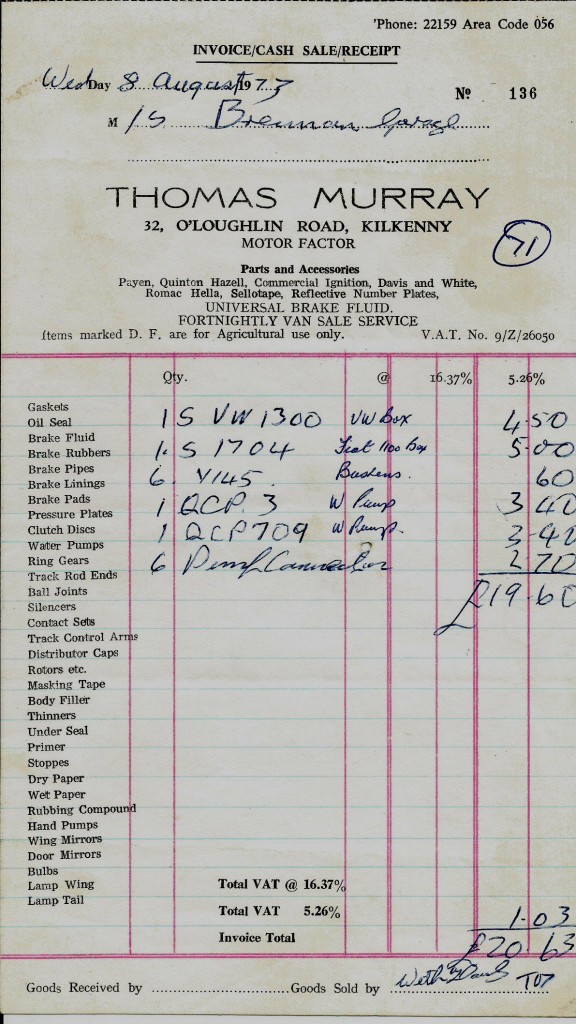 'Phone: 22159 Area Code 056
INVOICE/CASH SALE/RECEIPT
Wed Day 8 August 1973
No 136
M/S Brennan Garage
THOMAS MURRAY
32, O'LOUGHLIN ROAD, KILKENNY
MOTOR FACTOR
71
Parts and Accessories
Payen, Quinton Hazell, Commercial Ignition, Davis and White,
Romac Hella, Sellotape, Reflective Number Plates,
UNIVERSAL BRAKE FLUID.
FORTNIGHTLY VAN SALE SERVICE
Items marked D. F. are for Agricultural use only. V.A.T. No. 9/Z/26050
Qty. @ 16.37% 5.26%
Gaskets
Oil Seal 1 S VW 1300 VW Box 4.50
Brake Fluid
Brake Rubbers 1 S 1704 Fiat 1100 Box 5.00
Brake Pipes
Brake Linings 6 Y145 60
Brake Pads
Pressure Plates 1 QCP 3 W Pump 3 40
Clutch Discs 1 QCP 709 W Pump. 3.40
Water Pumps
Ring Gears 6 2 70
Track Rod Ends
Ball Joints £19.60
Silencers
Contact Sets
Track Control Arms
Distributor Caps
Rotors etc.
Masking Tape
Body Filler
Thinners
Under Seal
Primer
Stoppes
Dry Paper
Wet Paper
Rubbing Compound
Hand Pumps
Wing Mirrors
Door Mirrors
Bulbs
Lamp Wing Total VAT @ 16.37%
Lamp Tail
Total VAT 5.26% 1.03
Invoice Total £20.63
Goods Received by Goods Sold by